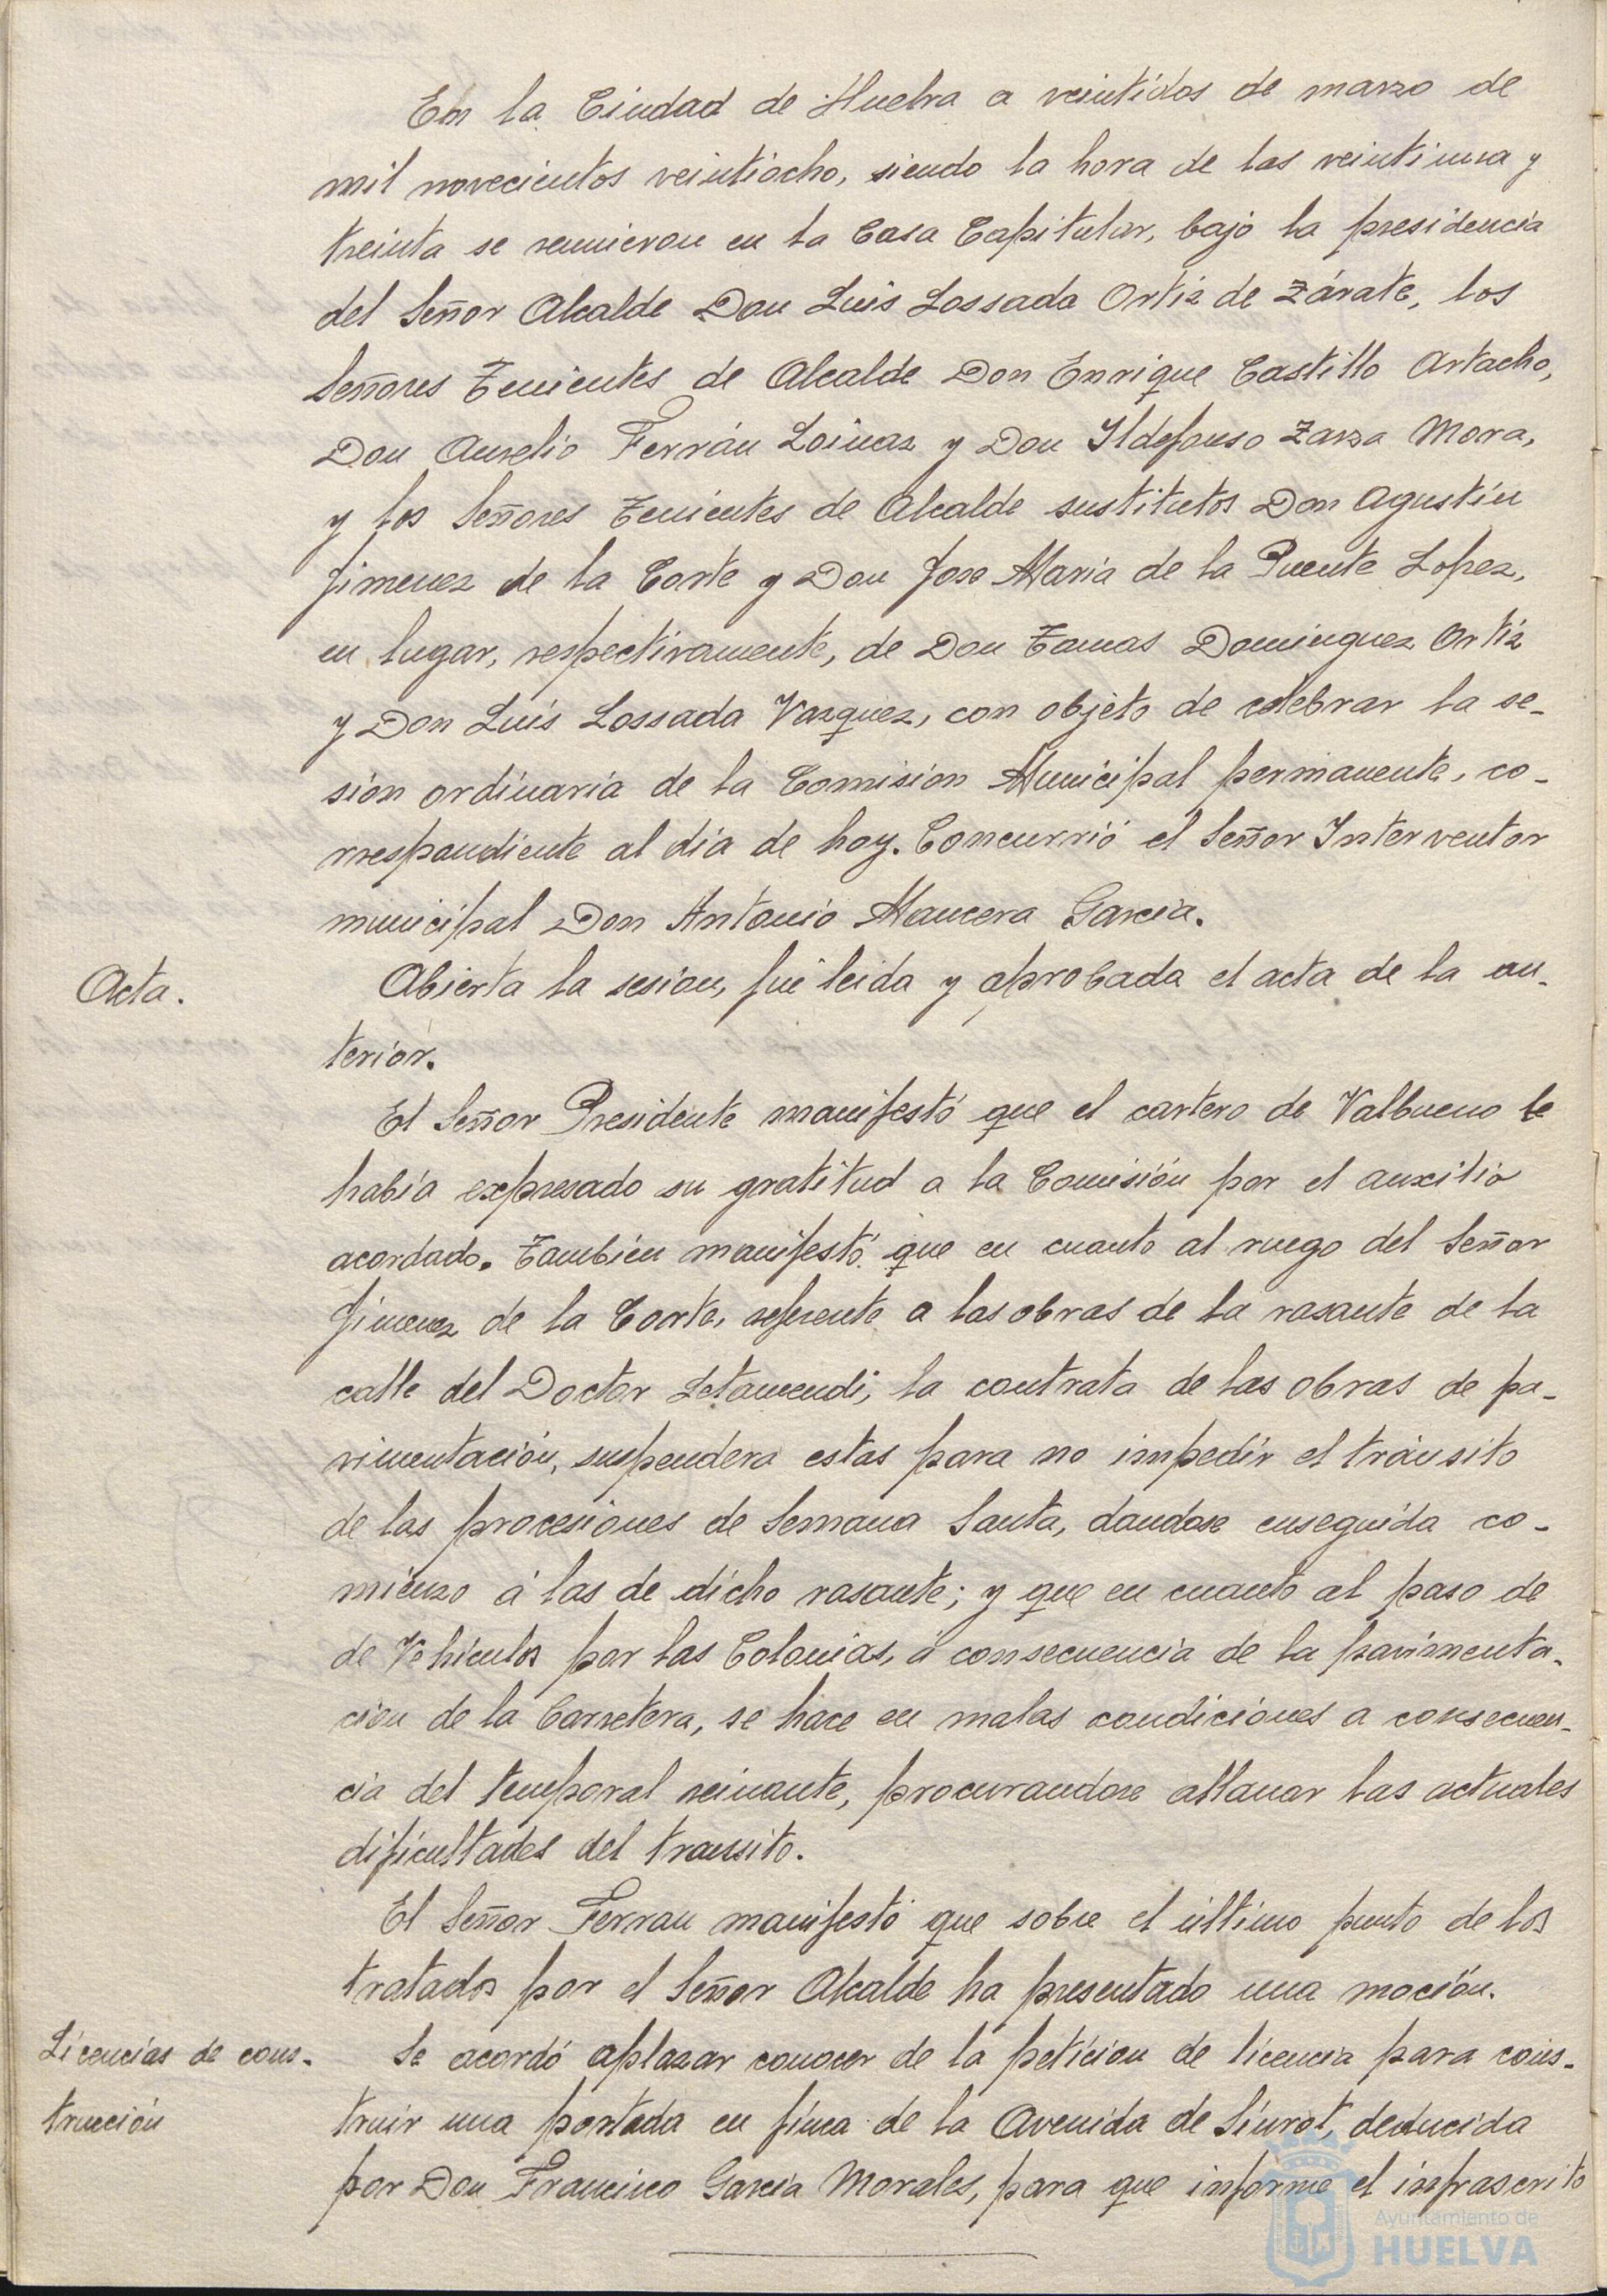 En la Ciudad de Huelva a veintidos de marzo de
mil novecientos veintiocho, siendo la hora de las veintiuna y
treinta se reunieron en la Casa Capitular, bajo la presidencia
del Señor Alcalde Don Luis Lossada Ortiz de Zárate, los
Señores Tenientes de Alcalde Don Enrique Castillo Artacho,
Don Aurelio Ferrán Loinaz y Don Ildefonso Zarza Mora,
y los Señores Tenientes de Alcalde sustitutos Don Agustín
Jimenez de la Corte y Don Jose Maria de la Puente Lopez,
en lugar, respectivamente, de Don Tomas Dominguez Ortiz
y Don Luis Lossada Vazquez, con objeto de celebrar la se-
sión ordinaria de la Comision Municipal permanente, co-
rrespondiente al día de hoy. Concurrió el Señor Interventor
municipal Don Antonio Mancera Garcia.
Acta.
Abierta la sesion, fué leida y aprobada el acta de la an-
terior.
El Señor Presidente manifestó que el cartero de Valbueno le
había expresado su gratitud a la Comisión por el auxilio
acordado. Tambien manifestó que en cuanto al ruego del Señor
Jimenez de la Corte, referente a las obras de la rasante de la
calle del Doctor Letamendi, la contrata de las obras de pa-
vimentación, suspendera estas para no impedir el tránsito
de las procesiones de Semana Santa, dandose enseguida co-
mienzo á las de dicho rasante; y que en cuanto al paso de
de Vehiculos por las Colonias, á consecuencia de la pavimenta-
cion de la Carretera, se hace en malas condiciones a consecuen-
cia del temporal reinante, procurandose allanar las actuales
dificultades del transito.
El Señor Ferran manifestó que sobre el último punto de los
tratados por el Señor Alcalde ha presentado una moción.
Licencias de cons-
trucción
Se acordó aplazar conocer de la petición de licencia para cons-
truir una portada en finca de la Avenida de Siurot, deducida
por Don Francisco Garcia Morales, para que informe el infrascrito
Ayuntamiento de
HUELVA